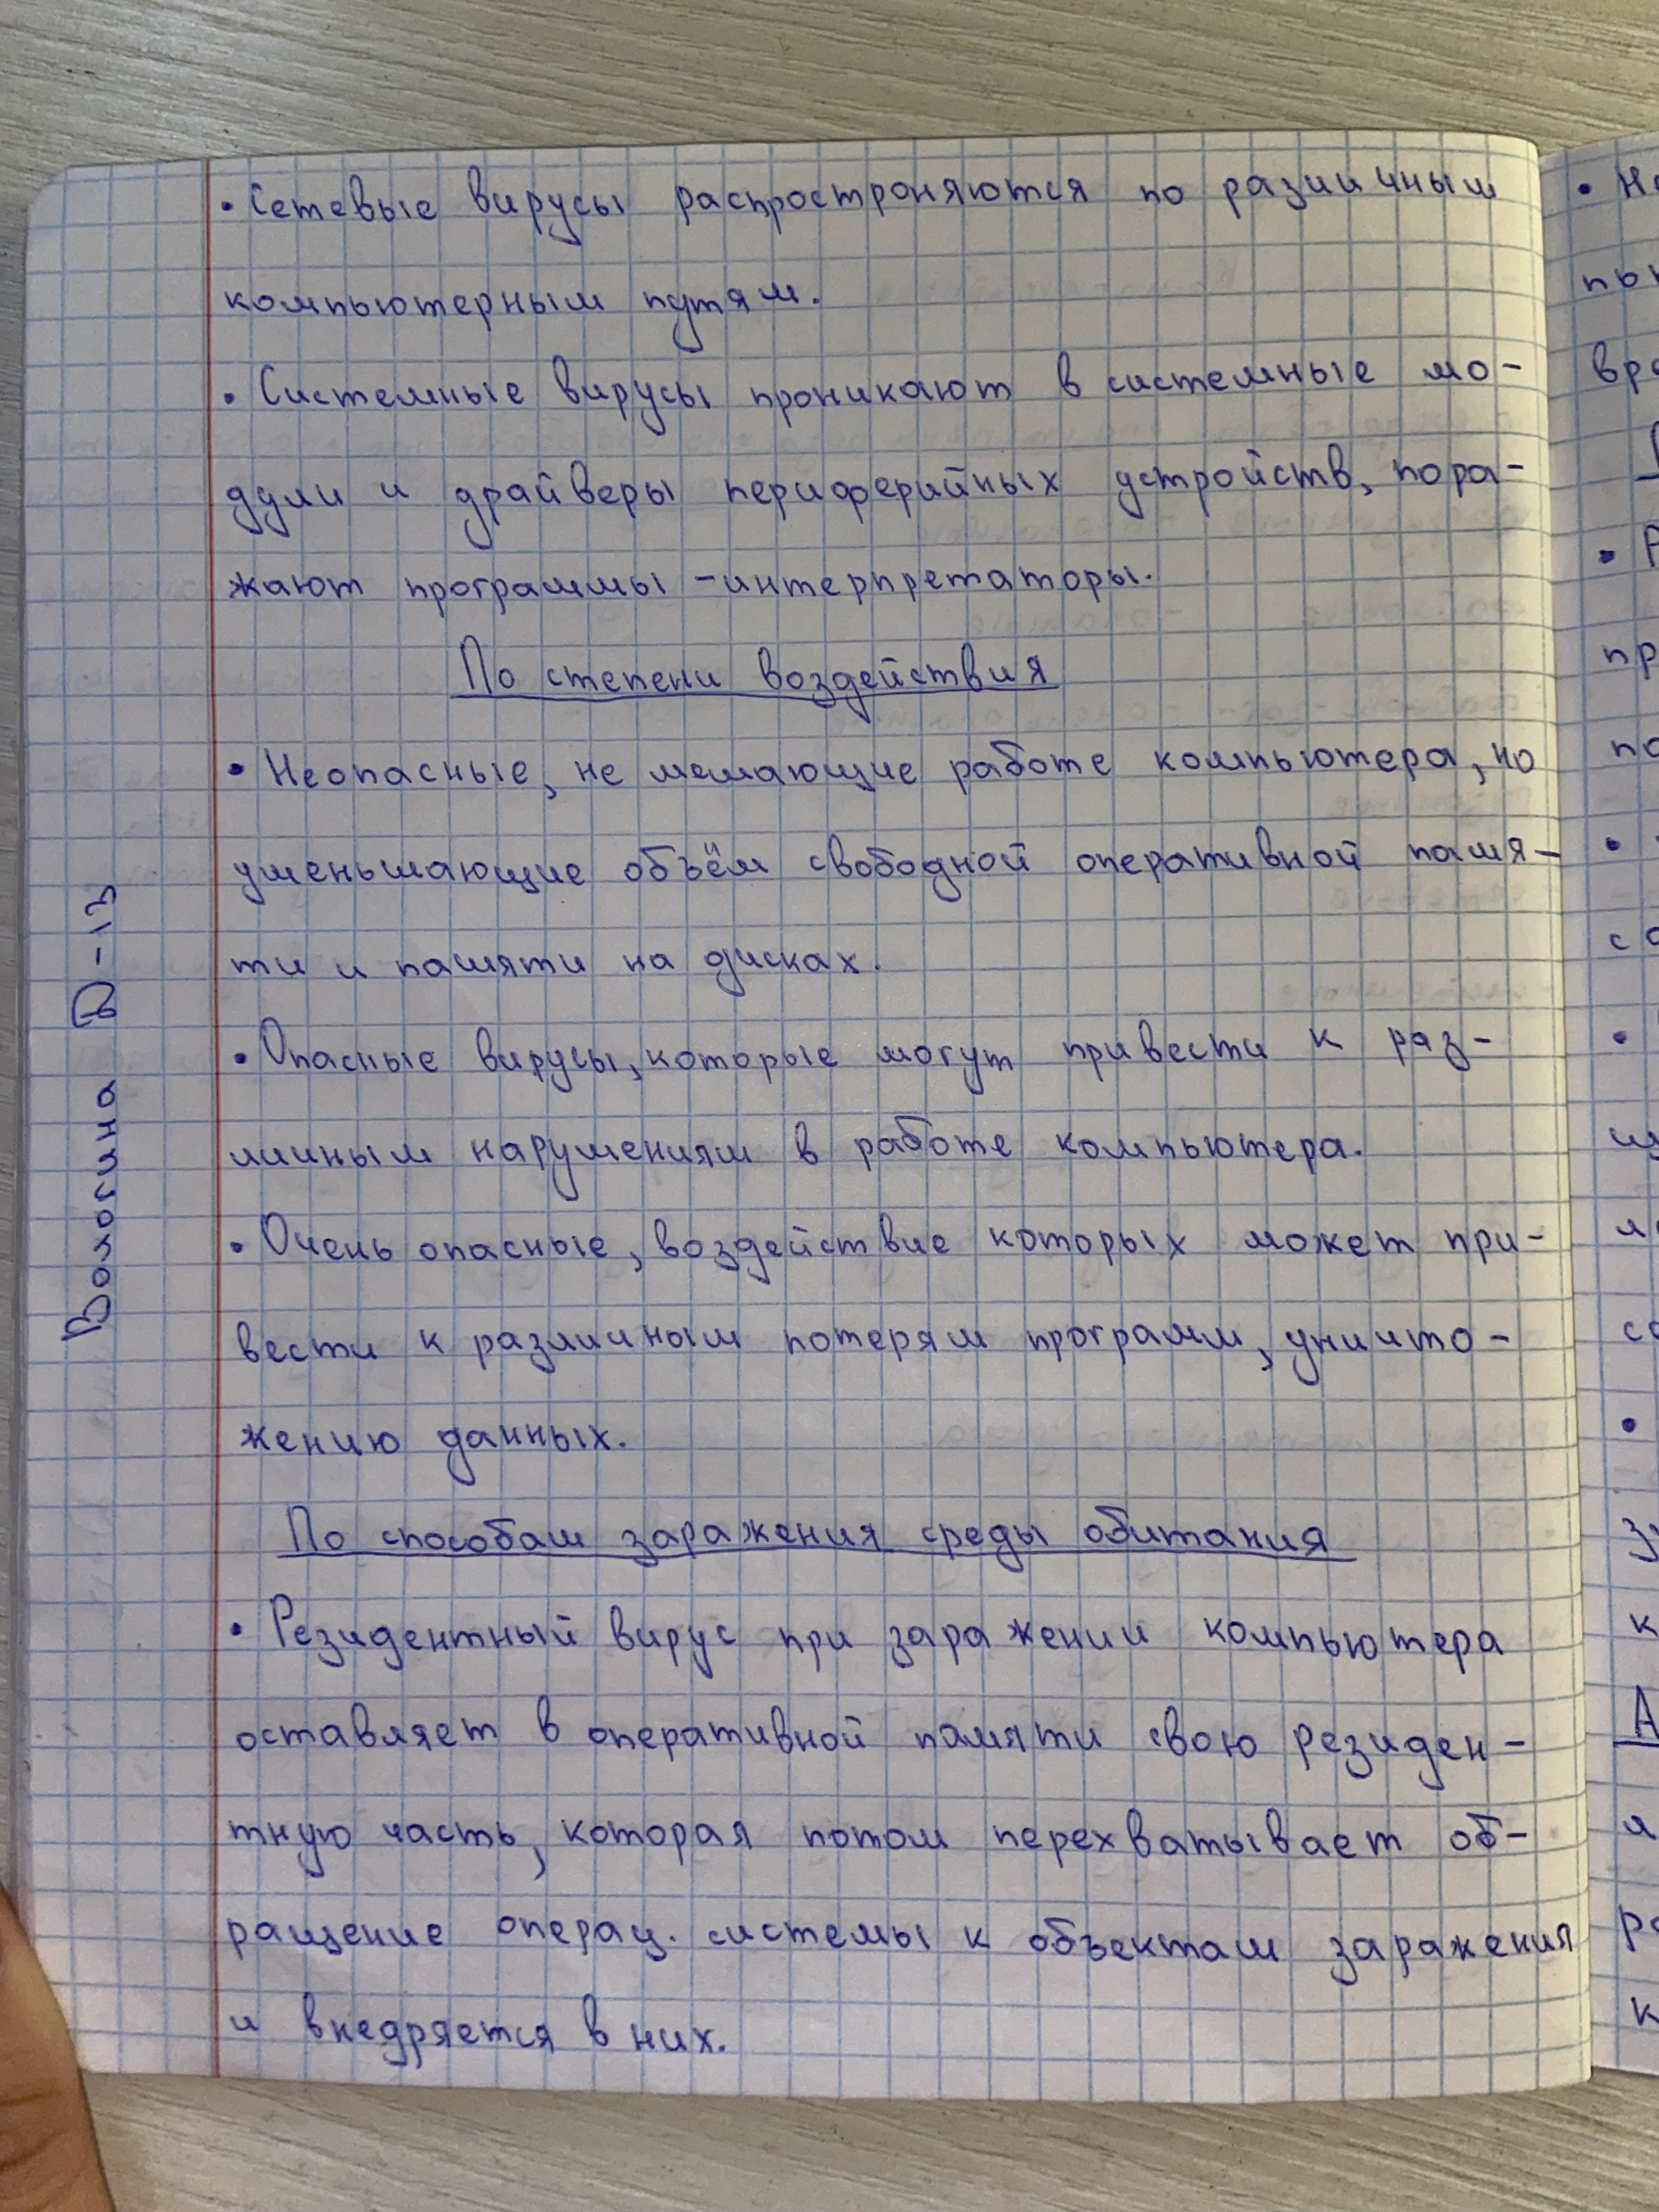 • Сетевые вирусы распростроняются по различным
компьютерным путям.
• Системные вирусы проникают в системные мо-
дули и драйверы периферийных устройств, пора-
жают программы -интерпретаторы.
По степени воздействия
• Неопасные, не мешающие работе компьютера, но
уменьшающие объём свободной оперативной памя-
ти и памяти на дисках.
• Опасные вирусы, которые могут привести к раз-
личным нарушениям в работе компьютера.
• Очень опасные, воздействие которых может при-
вести к различным потерям программ, уничто-
жению данных.
По способам заражения среды обитания
• Резидентный вирус при заражении компьютера
оставляет в оперативной памяти свою резиден-
тную часть, которая потом перехватывает об-
ращение операц. системы к объектам заражения
и внедряется в них.